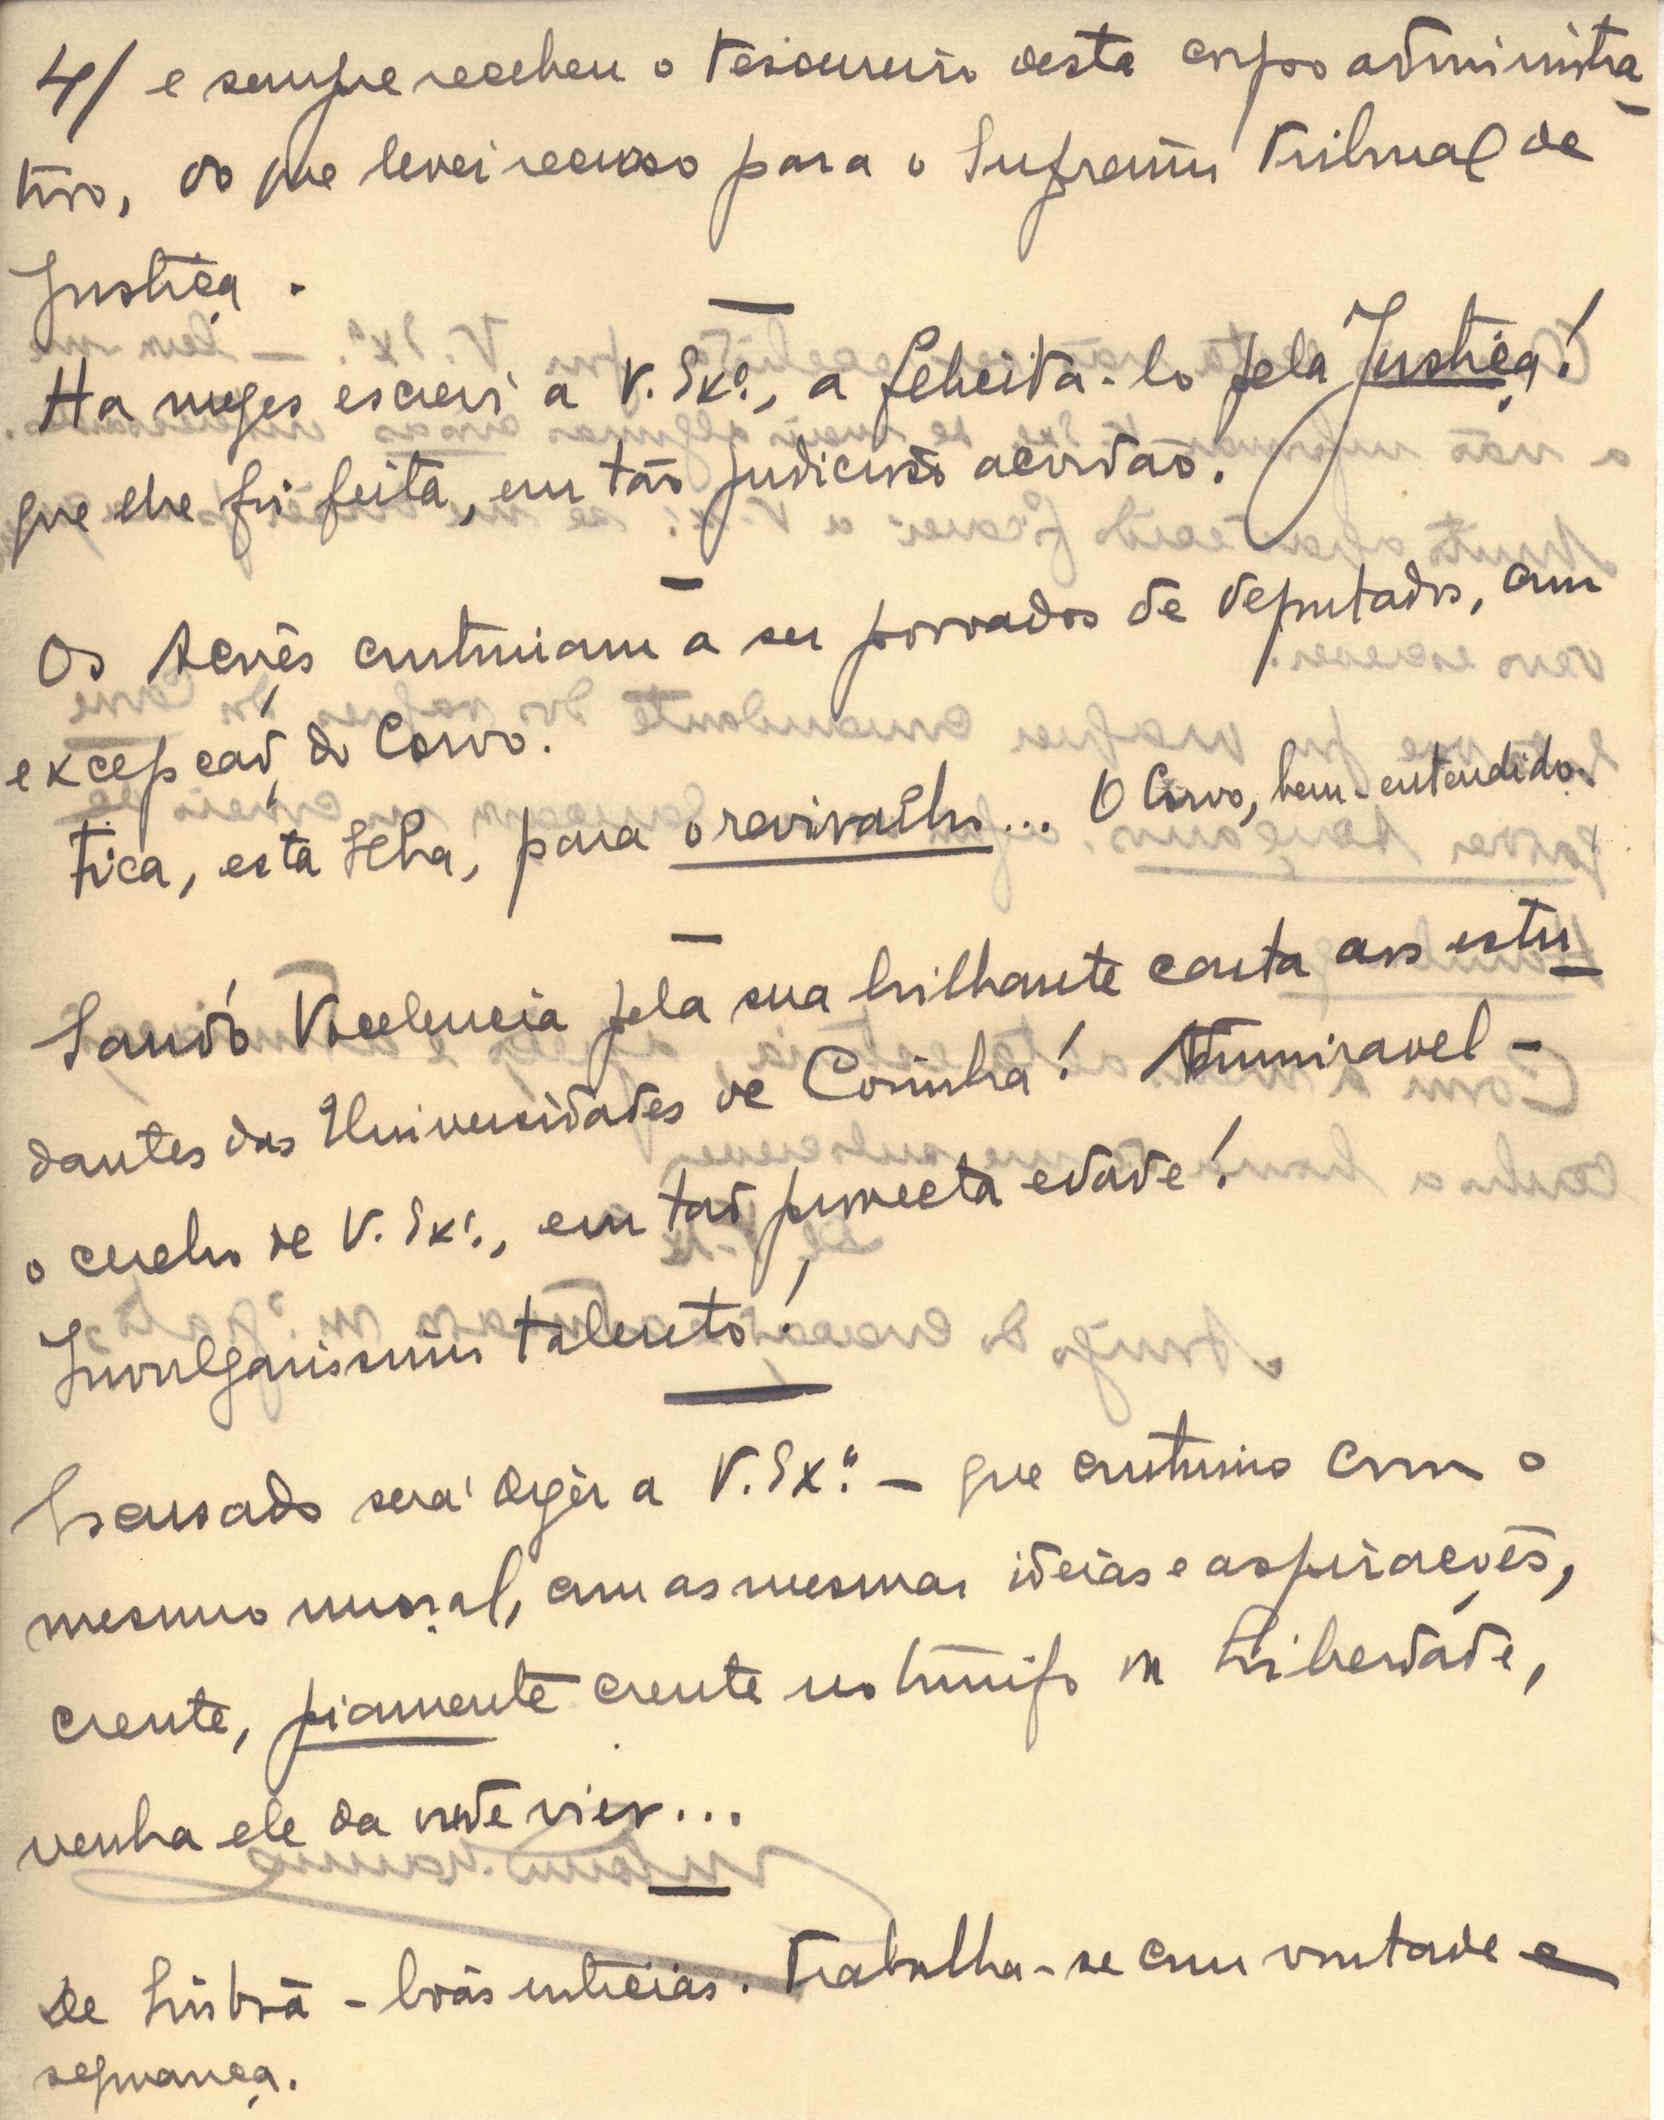 4/ e sempre recebeu o tesoureiro deste corpo administra-
tivo, do que levei recurso para o Supremo Tribunal de
Justiça.
Ha mezes escrevi a V. Exª., a felicita-lo pela Justiça!
que lhe foi feita, em tão judicioso acordão.
Os Açôres continuam a ser povoados de deputados, com
excepção do Corvo.
Fica, esta Ilha, para o reviralho... O Corvo, bem-entendido.
Saudo Vocelencia pela sua brilhante carta aos estu-
dantes das Universidades de Coimbra! Admiravel -
o cerebro de V. Exª., em tão provecta edade!
Invulgarissimo talento!
Escusado será dizer a V. Exª. - que continuo com o
mesmo moral, com as mesmas ideias e aspirações,
crente, piamente crente no triunfo da Liberdade,
venha ele da onde vier...
De Lisboa - boas noticias. Trabalha-se com vontade e
segurança.